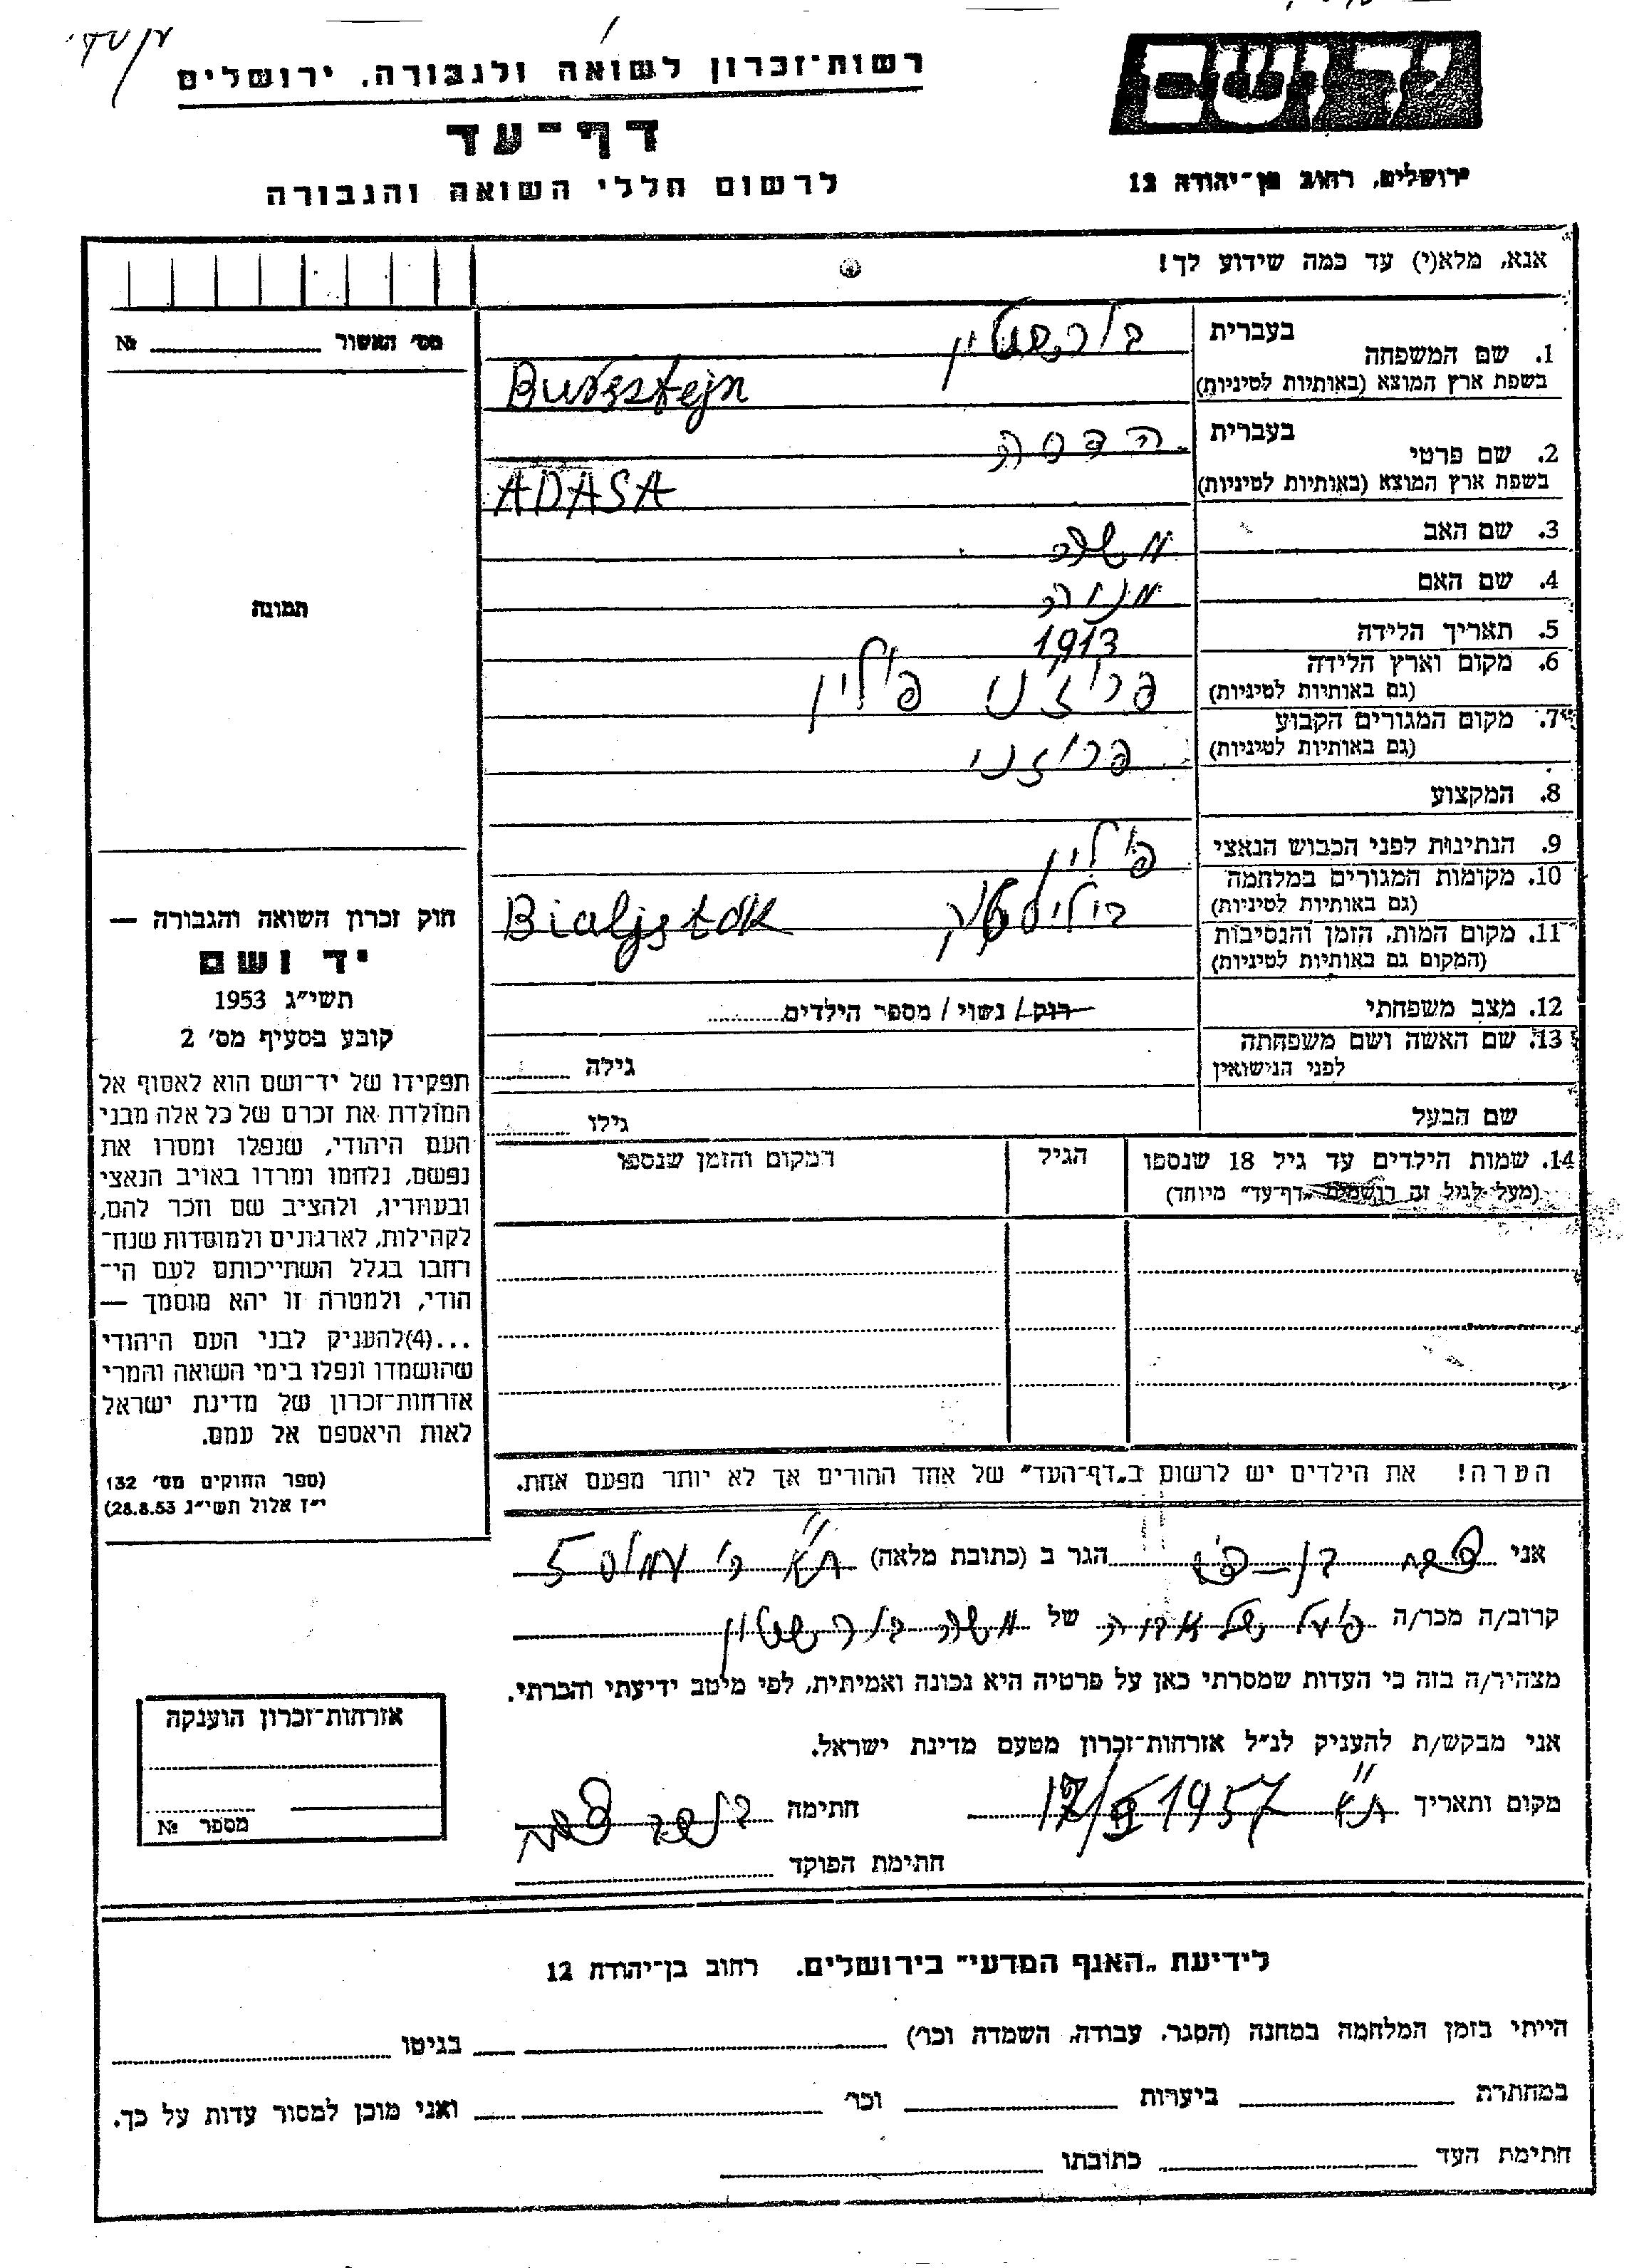 רשות־זכרון לשואה ולגבורה, ירושלים
דף־עד
לרשום חללי השואה והגבורה
יד ושם
ירושלים, רחוב בן־יהודה 12
אנא, מלא(י) עד כמה שידוע לך!
מס׳ האשור № 
תמונה
1. שם המשפחה
בעברית בורשטיין
בשפת ארץ המוצא (באותיות לטיניות) Bursztejn
2. שם פרטי
בעברית הדסה
בשפת ארץ המוצא (באותיות לטיניות) ADASA
3. שם האב משה
4. שם האם
5. תאריך הלידה 1913
6. מקום וארץ הלידה פרוז'ני פולין
(גם באותיות לטיניות)
7. מקום המגורים הקבוע פרוז'ני
(גם באותיות לטיניות)
8. המקצוע
9. הנתינות לפני הכבוש הנאצי פולין
10. מקומות המגורים במלחמה
(גם באותיות לטיניות) ביליסטוק Bialjstok
11. מקום המות, הזמן והנסיבות
(המקום גם באותיות לטיניות)
12. מצב משפחתי רוק/ נשוי / מספר הילדים
13. שם האשה ושם משפחתה
לפני הנישואין
גילה
שם הבעל גילו
14. שמות הילדים עד גיל 18 שנספו הגיל המקום והזמן שנספו
(מעל לגיל זה רושמים „דף־עד״ מיוחד)
הערה! את הילדים יש לרשום ב„דף־העד״ של אחד ההורים אך לא יותר מפעם אחת.
חוק זכרון השואה והגבורה —
יד ושם
תשי״ג 1953
קובע בסעיף מס׳ 2
תפקידו של יד־ושם הוא לאסוף אל
המולדת את זכרם של כל אלה מבני
העם היהודי, שנפלו ומסרו את
נפשם, נלחמו ומרדו באויב הנאצי
ובעוזריו, ולהציב שם וזכר להם,
לקהילות, לארגונים ולמוסדות שנח־
רחבו בגלל השתייכותם לעם הי־
הודי, ולמטרה זו יהא מוסמך —
...(4)להעניק לבני העם היהודי
שהושמדו ונפלו בימי השואה והמרי
אזרחות־זכרון של מדינת ישראל
לאות היאספם אל עמם.
(ספר החוקים מס׳ 132
י״ז אלול תשי״ג 28.8.53)
אני פסח הגר ב (כתובת מלאה) ת״א 5
קרוב/ה מכר/ה של משה בורשטיין
מצהיר/ה בזה כי העדות שמסרתי כאן על פרטיה היא נכונה ואמיתית, לפי מיטב ידיעתי והכרתי.
אני מבקש/ת להעניק לנ״ל אזרחות־זכרון מטעם מדינת ישראל.
מקום ותאריך ת״א 1957 חתימה
חתימת הפוקד
אזרחות־זכרון הוענקה
מספר №
לידיעת „האגף המדעי״ בירושלים, רחוב בן־יהודה 12
הייתי בזמן המלחמה במחנה (הסגר, עבודה, השמדה וכו׳) בגיטו
במחתרת ביערות וכו׳ ואני מוכן למסור עדות על כך.
חתימת העד כתובתו